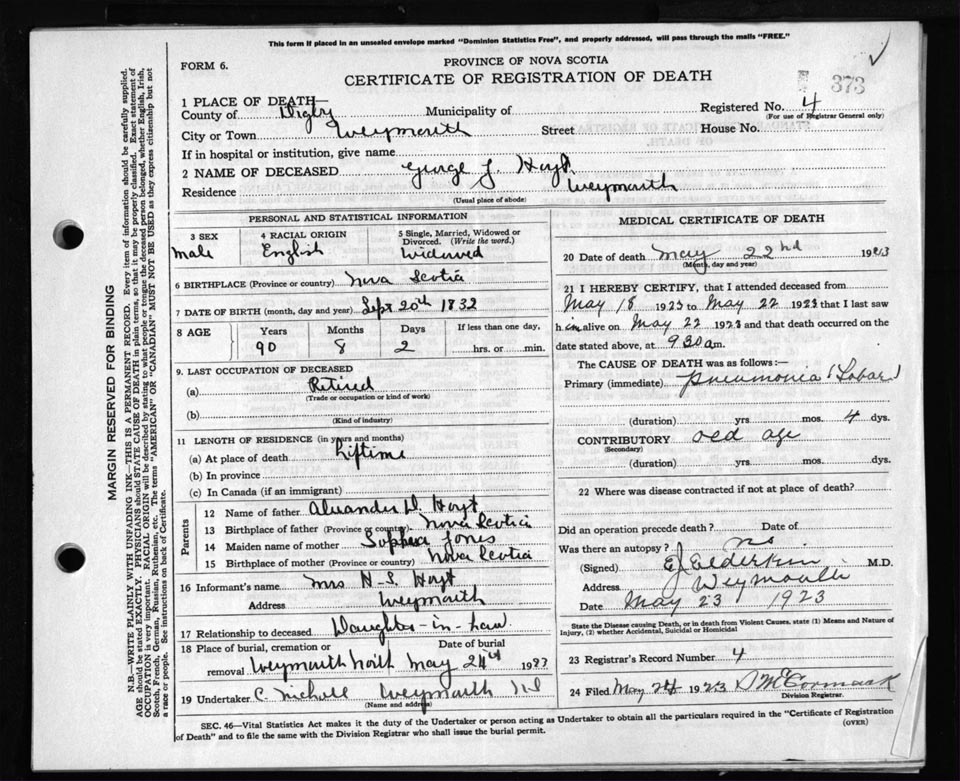 This form if placed in an unsealed envelope marked "Dominion Statistics Free", and properly addressed, will pass through the mails "FREE."
FORM 6.
PROVINCE OF NOVA SCOTIA
CERTIFICATE OF REGISTRATION OF DEATH
373
1 PLACE OF DEATH—
County of Digby Municipality of Registered No. 4
(For use of Registrar General only)
City or Town Weymouth Street House No.
If in hospital or institution, give name
2 NAME OF DECEASED George J. Hoyt
Residence Weymouth
(Usual place of abode)
PERSONAL AND STATISTICAL INFORMATION
3 SEX 4 RACIAL ORIGIN 5 Single, Married, Widowed or Divorced. (Write the word.)
Male English Widowed
6 BIRTHPLACE (Province or country) Nova Scotia
7 DATE OF BIRTH (month, day and year) Sept 20th 1832
8 AGE Years Months Days If less than one day,
90 8 2 hrs. or min.
9. LAST OCCUPATION OF DECEASED
(a) Retired
(Trade or occupation or kind of work)
(b)
(Kind of industry)
11 LENGTH OF RESIDENCE (in years and months)
(a) At place of death Liftime
(b) In province
(c) In Canada (if an immigrant)
Parents
12 Name of father Alexander D. Hoyt
13 Birthplace of father (Province or country) Nova Scotia
14 Maiden name of mother Sophia Jones
15 Birthplace of mother (Province or country) Nova Scotia
16 Informant's name Mrs H. S. Hoyt
Address Weymouth
17 Relationship to deceased Daughter-in-Law
18 Place of burial, cremation or removal Weymouth North Date of burial May 24th 1923
19 Undertaker C. Nichols Weymouth NS
(Name and address)
MEDICAL CERTIFICATE OF DEATH
20 Date of death May 22nd 1923
(Month, day and year)
21 I HEREBY CERTIFY, that I attended deceased from
May 18 1923 to May 22 1923 that I last saw
him alive on May 22 1923 and that death occurred on the
date stated above, at 9 30 am.
The CAUSE OF DEATH was as follows:—
Primary (immediate) pneumonia (Lobar)
(duration) yrs. mos. 4 dys.
CONTRIBUTORY old age
(Secondary)
(duration) yrs. mos. dys.
22 Where was disease contracted if not at place of death?
Did an operation precede death? Date of
Was there an autopsy? no
(Signed) E J Elderkin M.D.
Address Weymouth
Date May 23 1923
State the Disease causing Death, or in death from Violent Causes, state (1) Means and Nature of
Injury, (2) whether Accidental, Suicidal or Homicidal
23 Registrar's Record Number 4
24 Filed May 24 1923 D McCormack
Division Registrar.
SEC. 46—Vital Statistics Act makes it the duty of the Undertaker or person acting as Undertaker to obtain all the particulars required in the "Certificate of Registration
of Death" and to file the same with the Division Registrar who shall issue the burial permit. (OVER)
MARGIN RESERVED FOR BINDING
N.B.—WRITE PLAINLY WITH UNFADING INK—THIS IS A PERMANENT RECORD. Every item of information should be carefully supplied.
AGE should be stated EXACTLY. PHYSICIANS should STATE CAUSE OF DEATH in plain terms, so that it may be properly classified. Exact statement of
OCCUPATION is very important. RACIAL ORIGIN will be described by stating to what people or tongue the deceased person belonged, whether English, Irish,
Scotch, French, German, Russian, Ruthenian, etc. The terms "AMERICAN" OR "CANADIAN" MUST NOT BE USED as they express citizenship but not
a race or people. See instructions on back of Certificate.